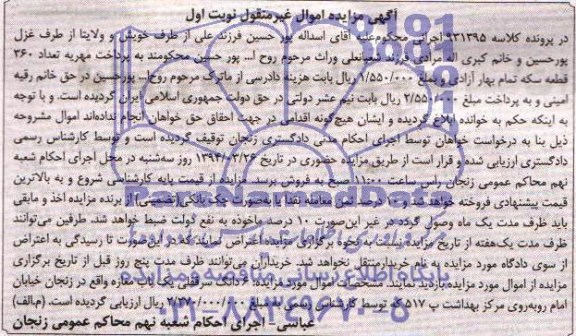 آگهی مزایده اموال غیرمنقول نوبت اول
در پرونده کلاسه ۹۳۱۳۹۵ اجرایی محکوم‌علیه آقای اسداله پور حسین فرزند علی از طرف خویش و ولایتا از طرف غزل
پورحسین و خانم کبری اله مرادی فرزند شعبانعلی وراث مرحوم روح ا... پور حسین محکومند به پرداخت مهریه تعداد ۳۶۰
قطعه سکه تمام بهار آزادی و مبلغ ۱/۵۵۰/۰۰۰ ریال بابت هزینه دادرسی از ماترک مرحوم روح‌ا... پورحسین در حق خانم رقیه
امینی و به پرداخت مبلغ ۲/۵۵۰/۰۰۰ ریال بابت نیم عشر دولتی در حق دولت جمهوری اسلامی ایران گردیده است. و با توجه
به اینکه حکم به خوانده ابلاغ گردیده و ایشان هیچ‌گونه اقدامی در جهت احقاق حق خواهان انجام نداده‌اند اموال مشروحه
ذیل بنا به درخواست خواهان توسط اجرای احکام مدنی دادگستری زنجان توقیف گردیده است و توسط کارشناس رسمی
دادگستری ارزیابی شده و قرار است از طریق مزایده حضوری در تاریخ ۱۳۹۴/۰۳/۲۶ روز سه‌شنبه در محل اجرای احکام شعبه
نهم محاکم عمومی زنجان راس ساعت ۱۱:۰۰ صبح به فروش برسد. مزایده از قیمت پایه کارشناسی شروع و به بالاترین
قیمت پیشنهادی فروخته خواهد شد و ۱۰ درصد ثمن معامله نقدا یا به‌صورت چک بانکی (تضمینی) از برنده مزایده اخذ و مابقی
باید ظرف مدت یک ماه وصول گردد در غیر این‌صورت ۱۰ درصد ماخوذه به نفع دولت ضبط خواهد شد. طرفین می‌توانند
ظرف مدت یک‌هفته از تاریخ مزایده نسبت به نحوه برگزاری مزایده اعتراض نمایند که در این‌صورت تا رسیدگی به اعتراض
از سوی دادگاه مورد مزایده به نام خریدار منتقل نخواهد شد. خریداران می‌توانند ظرف مدت پنج روز قبل از تاریخ برگزاری
مزایده از اموال مورد مزایده بازدید نمایند. مشخصات اموال مورد مزایده: ۶ دانگ سرقفلی یک باب مغازه واقع در زنجان خیابان
امام روبه‌روی مرکز بهداشت پ ۵۱۷ که توسط کارشناس رسمی به مبلغ ۲/۲۷۰/۰۰۰/۰۰۰ ریال ارزیابی گردیده است. (م‌الف)
عباسی - اجرای احکام شعبه نهم محاکم عمومی زنجان
پایگاه اطلاع رسانی مناقصه و مزایده
۰۲۱-۸۸۳۴۹۶۷۰-۵